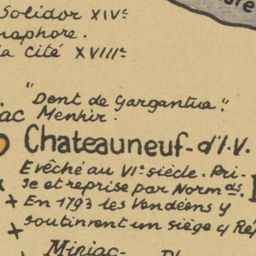 Solidor XIVe
maphore.
la Cité XVIIIe
"Dent de Gargantua".
ac Menhir.
Chateauneuf-d'I.V.
Evêché au VIe siècle. Pri-
se et reprise par Normds.
+ En 1793 les Vendéens y
+ soutinrent un siège y Ré
Miniac-